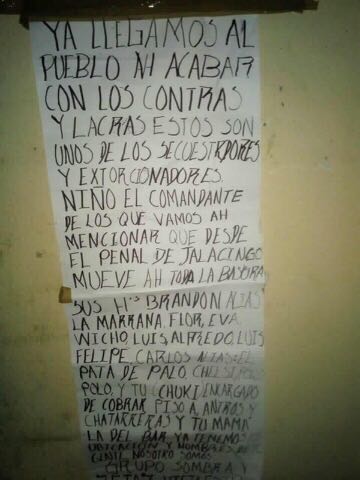 YA LLEGAMOS AL
PUEBLO AH ACABAR
CON LOS CONTRAS
Y LACRAS ESTOS SON
UNOS DE LOS SECUESTRDORES
Y EXTORCIONADORES.
NIÑO EL COMANDANTE
DE LOS QUE VAMOS AH
MENCIONAR QUE DESDE
EL PENAL DE JALACINGO
MUEVE AH TODA LA BASURA
SUS H°S BRANDON ALIAS
LA MARRANA, FLOR, EVA
WICHO, LUIS, ALFREDO, LUIS
FELIPE, CARLOS ALIAS: EL
PATA DE PALO, CHELSI
POLO, Y TU CHUKI ENCARGADO
DE COBRAR PISO A ANTROS Y
CHATARRERAS Y TU MAMA
LA DEL BAR, YA TENEMOS
UBICACION Y NOMBRES DE
GENTE NOSOTRO SOMOS
GRUPO SOMBRA Y